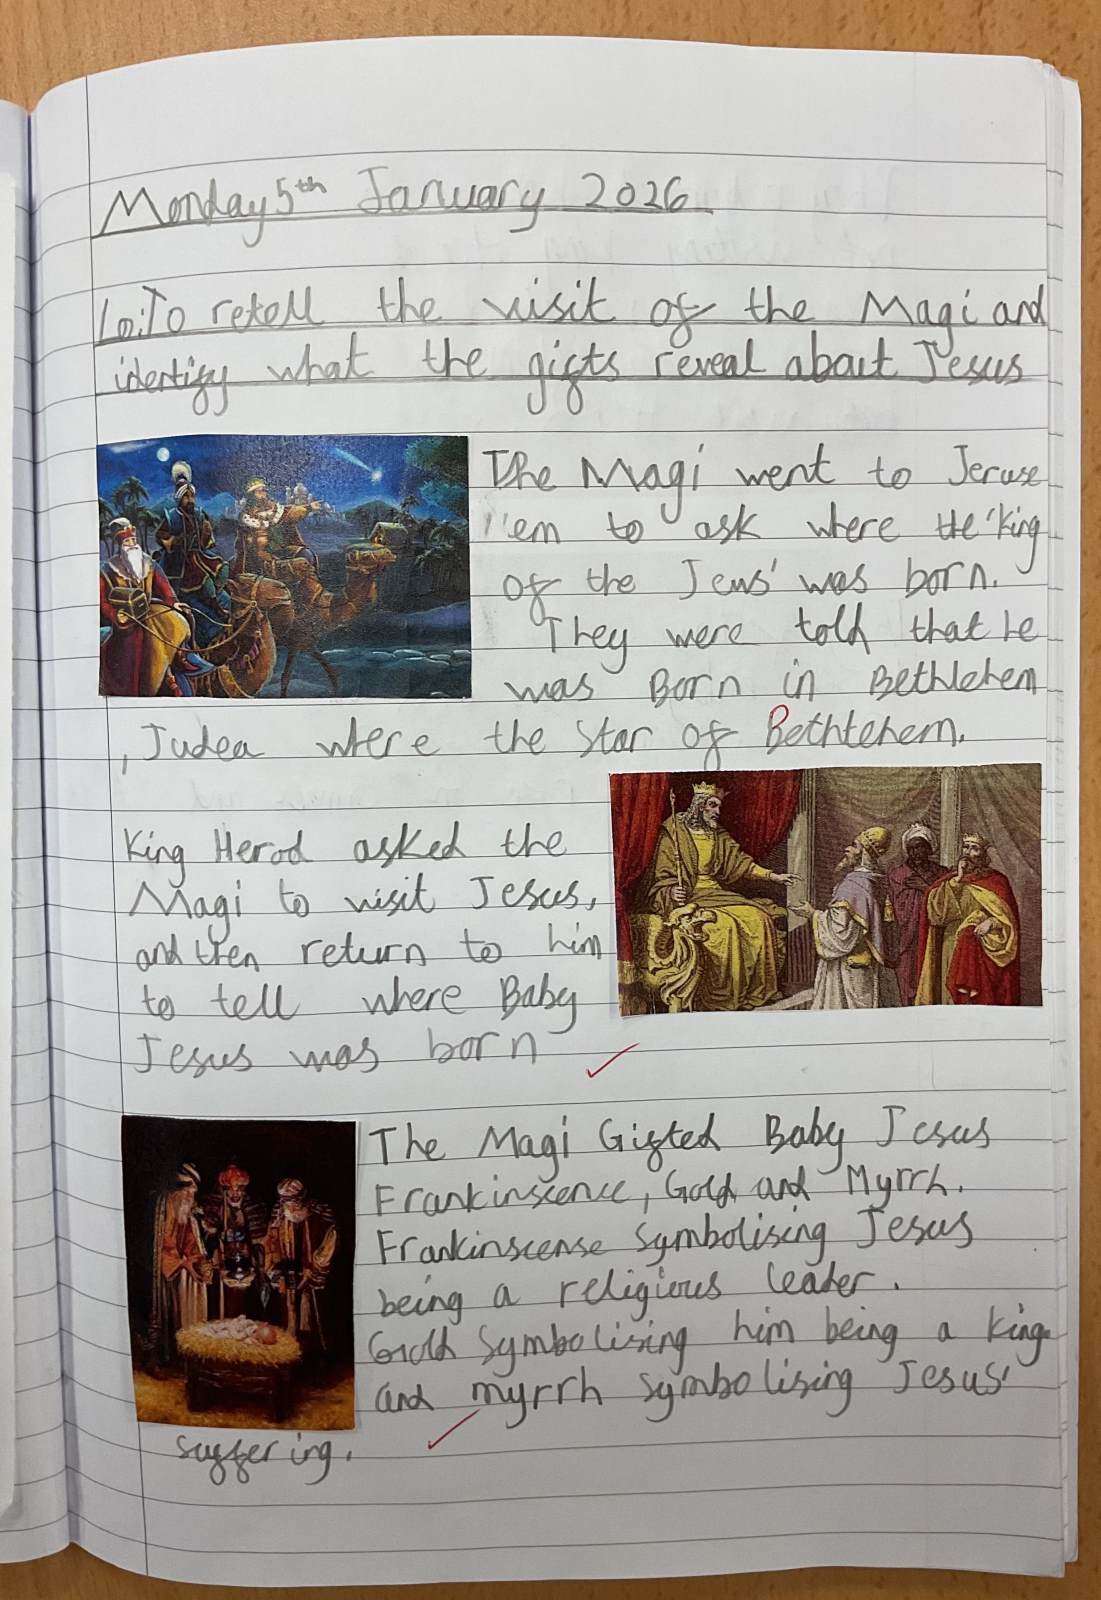 Monday 5th January 2026
Lo: To retell the visit of the Magi and
identify what the gifts reveal about Jesus
The Magi went to Jeruse
lem to ask where the 'King
of the Jews' was born.
They were told that he
was Born in Bethlehem
, Judea where the Star of Bethlehem.
King Herod asked the
Magi to visit Jesus,
and then return to him
to tell where Baby
Jesus was born
The Magi Gifted Baby Jesus
Frankinscence, Gold and Myrrh.
Frankinscense symbolising Jesus
being a religious leader.
Gold Symbolising him being a King
and myrrh symbolising Jesus'
suffering.